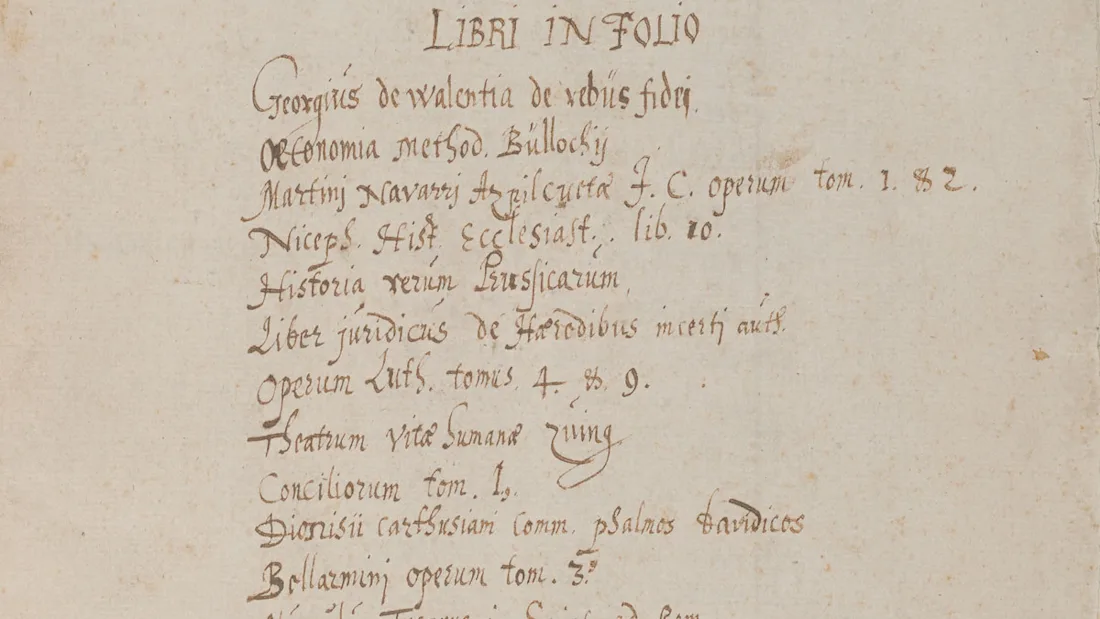 LIBRI IN FOLIO
Georgius de Walentia de rebus fidei.
Œconomia Method. Bullochij
Martinj Navarrj Azpilcuetæ J. C. operum tom. 1. & 2.
Niceph. Hist. Ecclesiast. lib. 10.
Historia rerum Prussicarum
Liber juridicus de Hæredibus incerti auth.
Operum Luth. tomus. 4. & 9.
Theatrum vitæ humanæ Zuing
Conciliorum tom. 1.
Dionisii carthusiani Comm. psalmos davidicos
Bellarminj operum tom. 3.